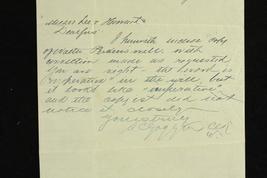 Messrs Lee & Howard
Dear Sirs
I herewith enclose copy
of Walter Bram's will with
correction made as requested
You are right - the word is
"cooperation" in the will, but
it looks like "corporation"
and the copyist did not
notice it closely
Yours truly